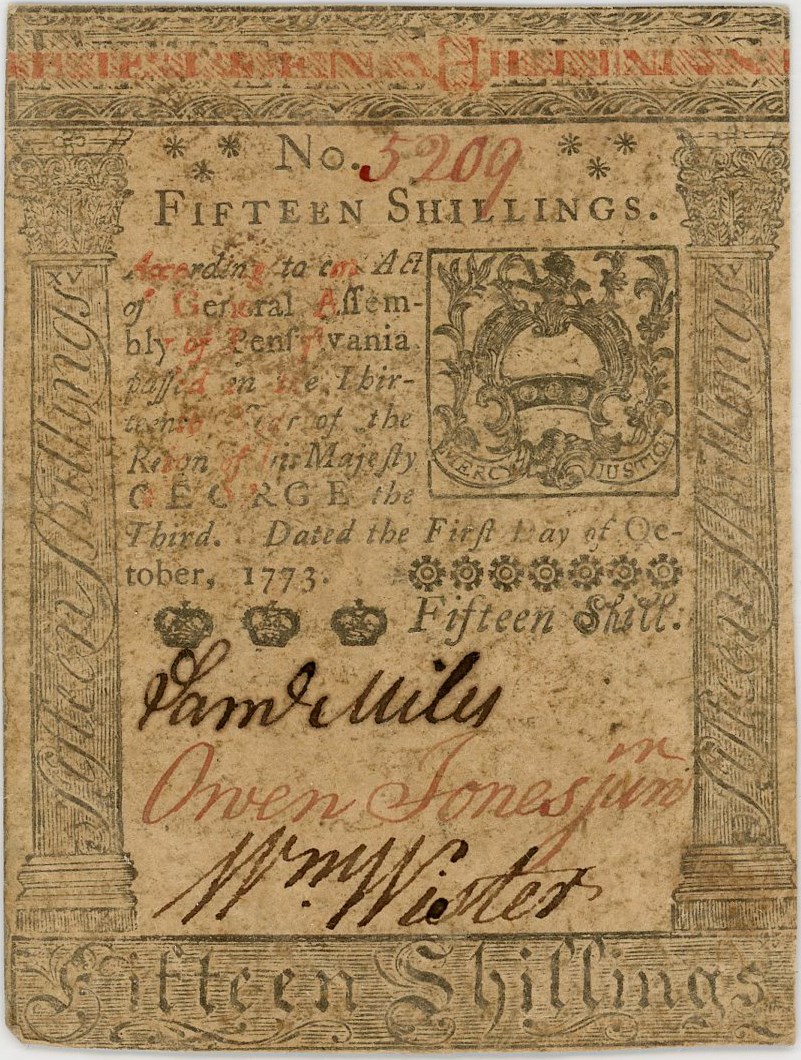 No. 5209
FIFTEEN SHILLINGS.
According to an Act
of General Assem-
bly of Pensylvania
passed in the Thir-
teenth Year of the
Reign of his Majesty
GEORGE the
Third. Dated the First Day of Oc-
tober, 1773.
MERCY JUSTICE
Fifteen Shill:
XV
Fifteen Shillings
XV
Fifteen Shillings
Saml Miles
Owen Jones junr
Wm Wister
Fifteen Shillings